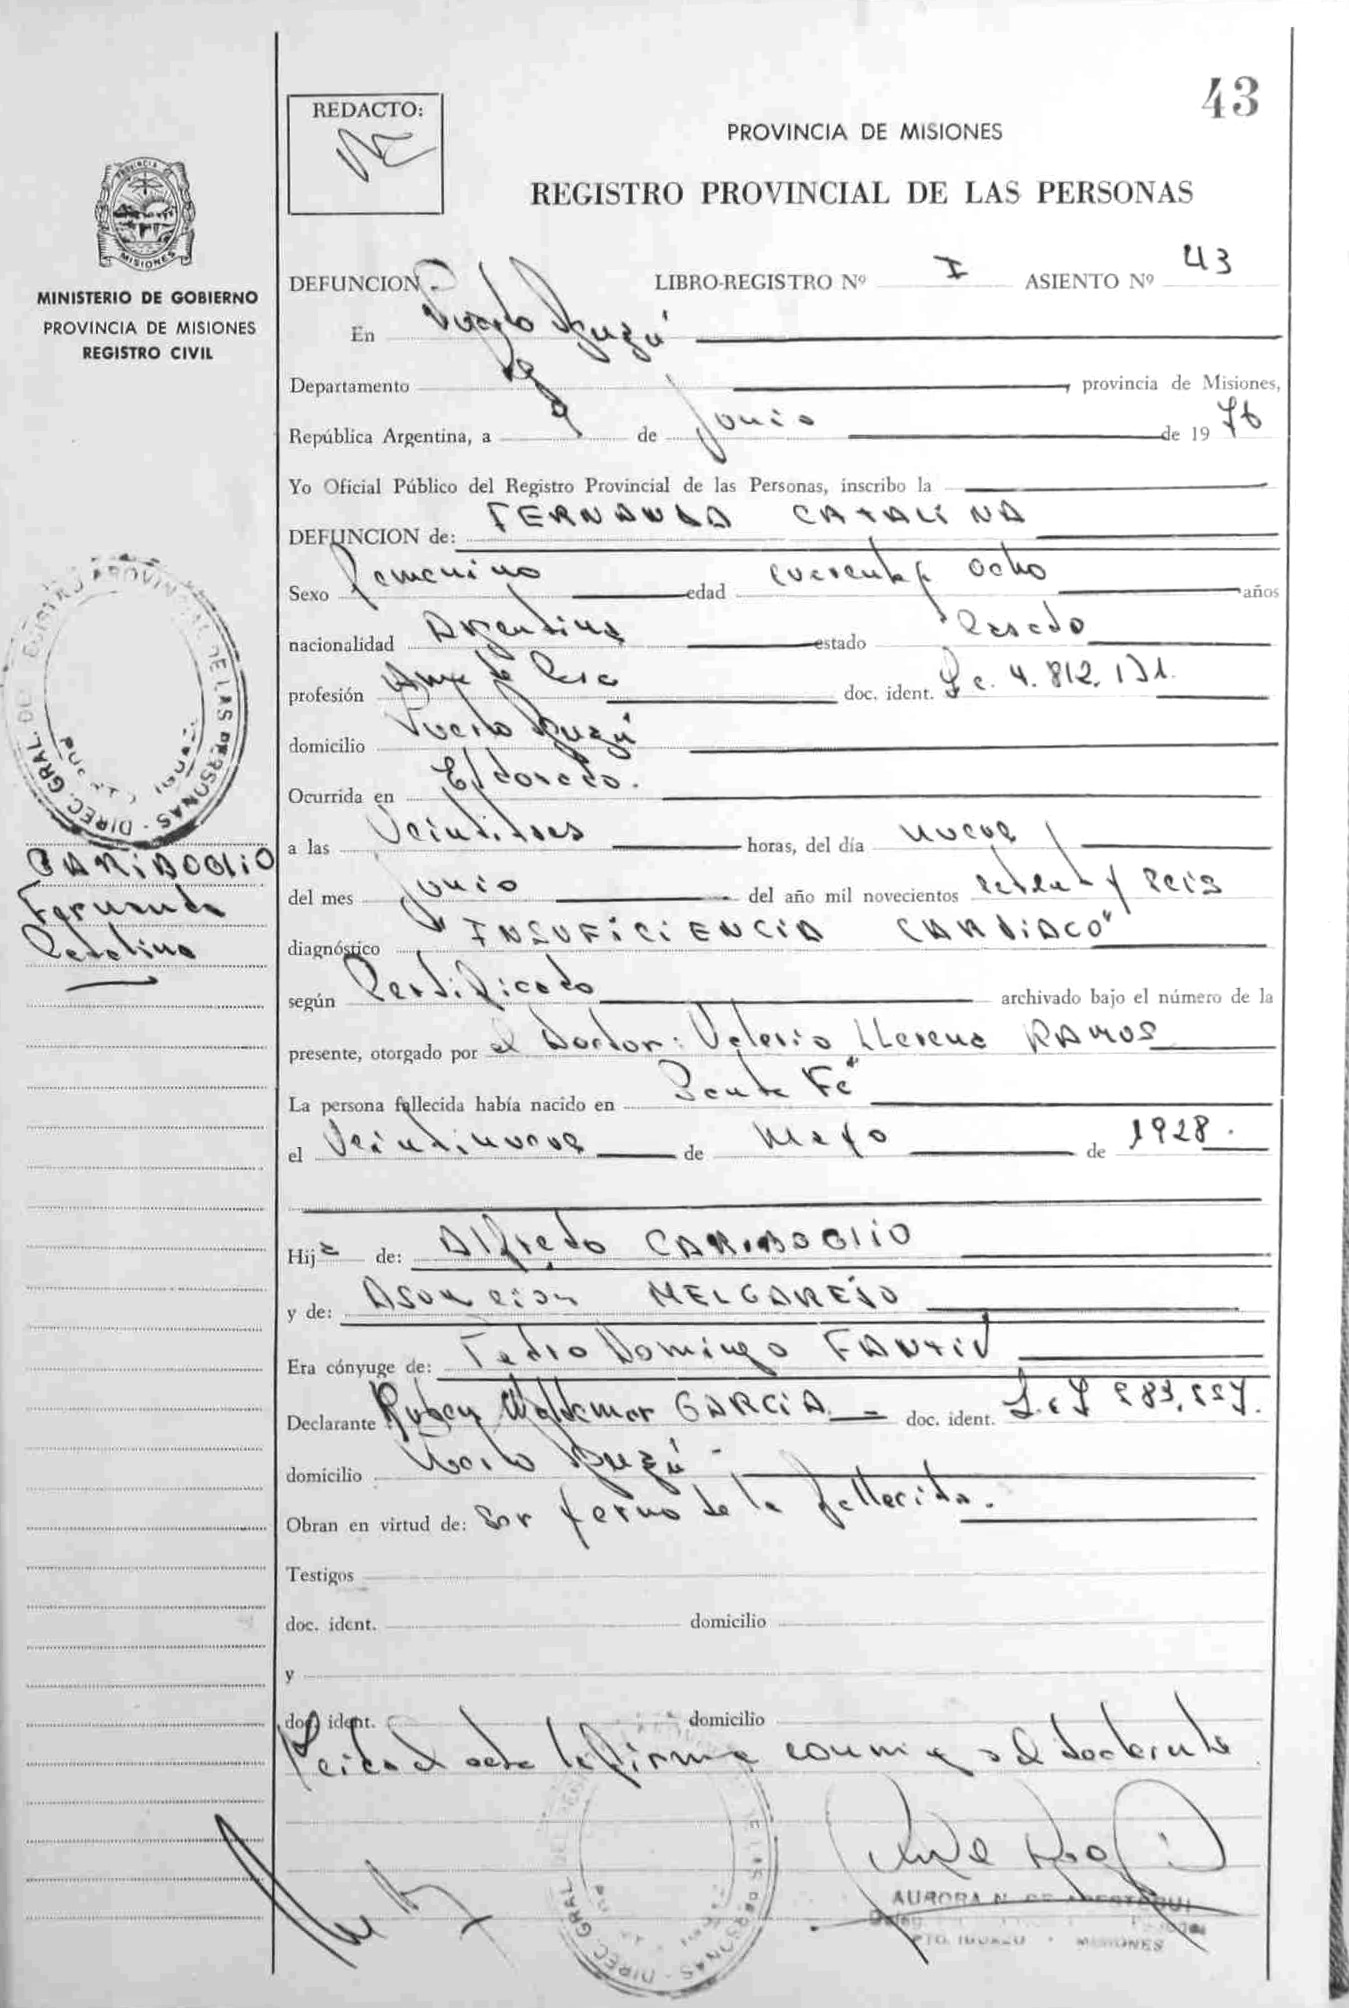 43
REDACTO:
PROVINCIA DE MISIONES
REGISTRO PROVINCIAL DE LAS PERSONAS
MISIONES
MINISTERIO DE GOBIERNO
PROVINCIA DE MISIONES
REGISTRO CIVIL
DEFUNCION LIBRO-REGISTRO Nº I ASIENTO Nº 43
En Puerto Iguazú
Departamento , provincia de Misiones,
República Argentina, a de Junio de 19 76
Yo Oficial Público del Registro Provincial de las Personas, inscribo la
DEFUNCION de: FERNANDA CATALINA
Sexo Femenino edad cuarenta y ocho años
nacionalidad Argentina estado Casada
profesión Ama de Casa doc. ident. L c. 4.812.131.
domicilio Puerto Iguazú
Ocurrida en Eldorado.
a las Veintitres horas, del día nueve
del mes Junio del año mil novecientos setenta y seis
diagnóstico "INSUFICIENCIA CARDIACO"
según Certificado archivado bajo el número de la
presente, otorgado por el Doctor: Valerio Llerena RAMOS
La persona fallecida había nacido en Santa Fé
el Veintinueve de Mayo de 1928.
Hija de: Alfredo CARIBOGLIO
y de: Asunción MELGAREJO
Era cónyuge de: Pedro Domingo FANTIN
Declarante Ruben Waldemar GARCIA doc. ident.
domicilio Puerto Iguazú
Obran en virtud de: Ser yerno de la fallecida.
Testigos
doc. ident. domicilio
y
doc. ident. domicilio
Leida el acta la firma conmigo el declarante
CARIBOGLIO
Fernanda
Catalina
REGISTRO PROVINCIAL DE LAS PERSONAS - DIREC. GRAL. DEL
AURORA N. DE
PTO. IGUAZU - MISIONES